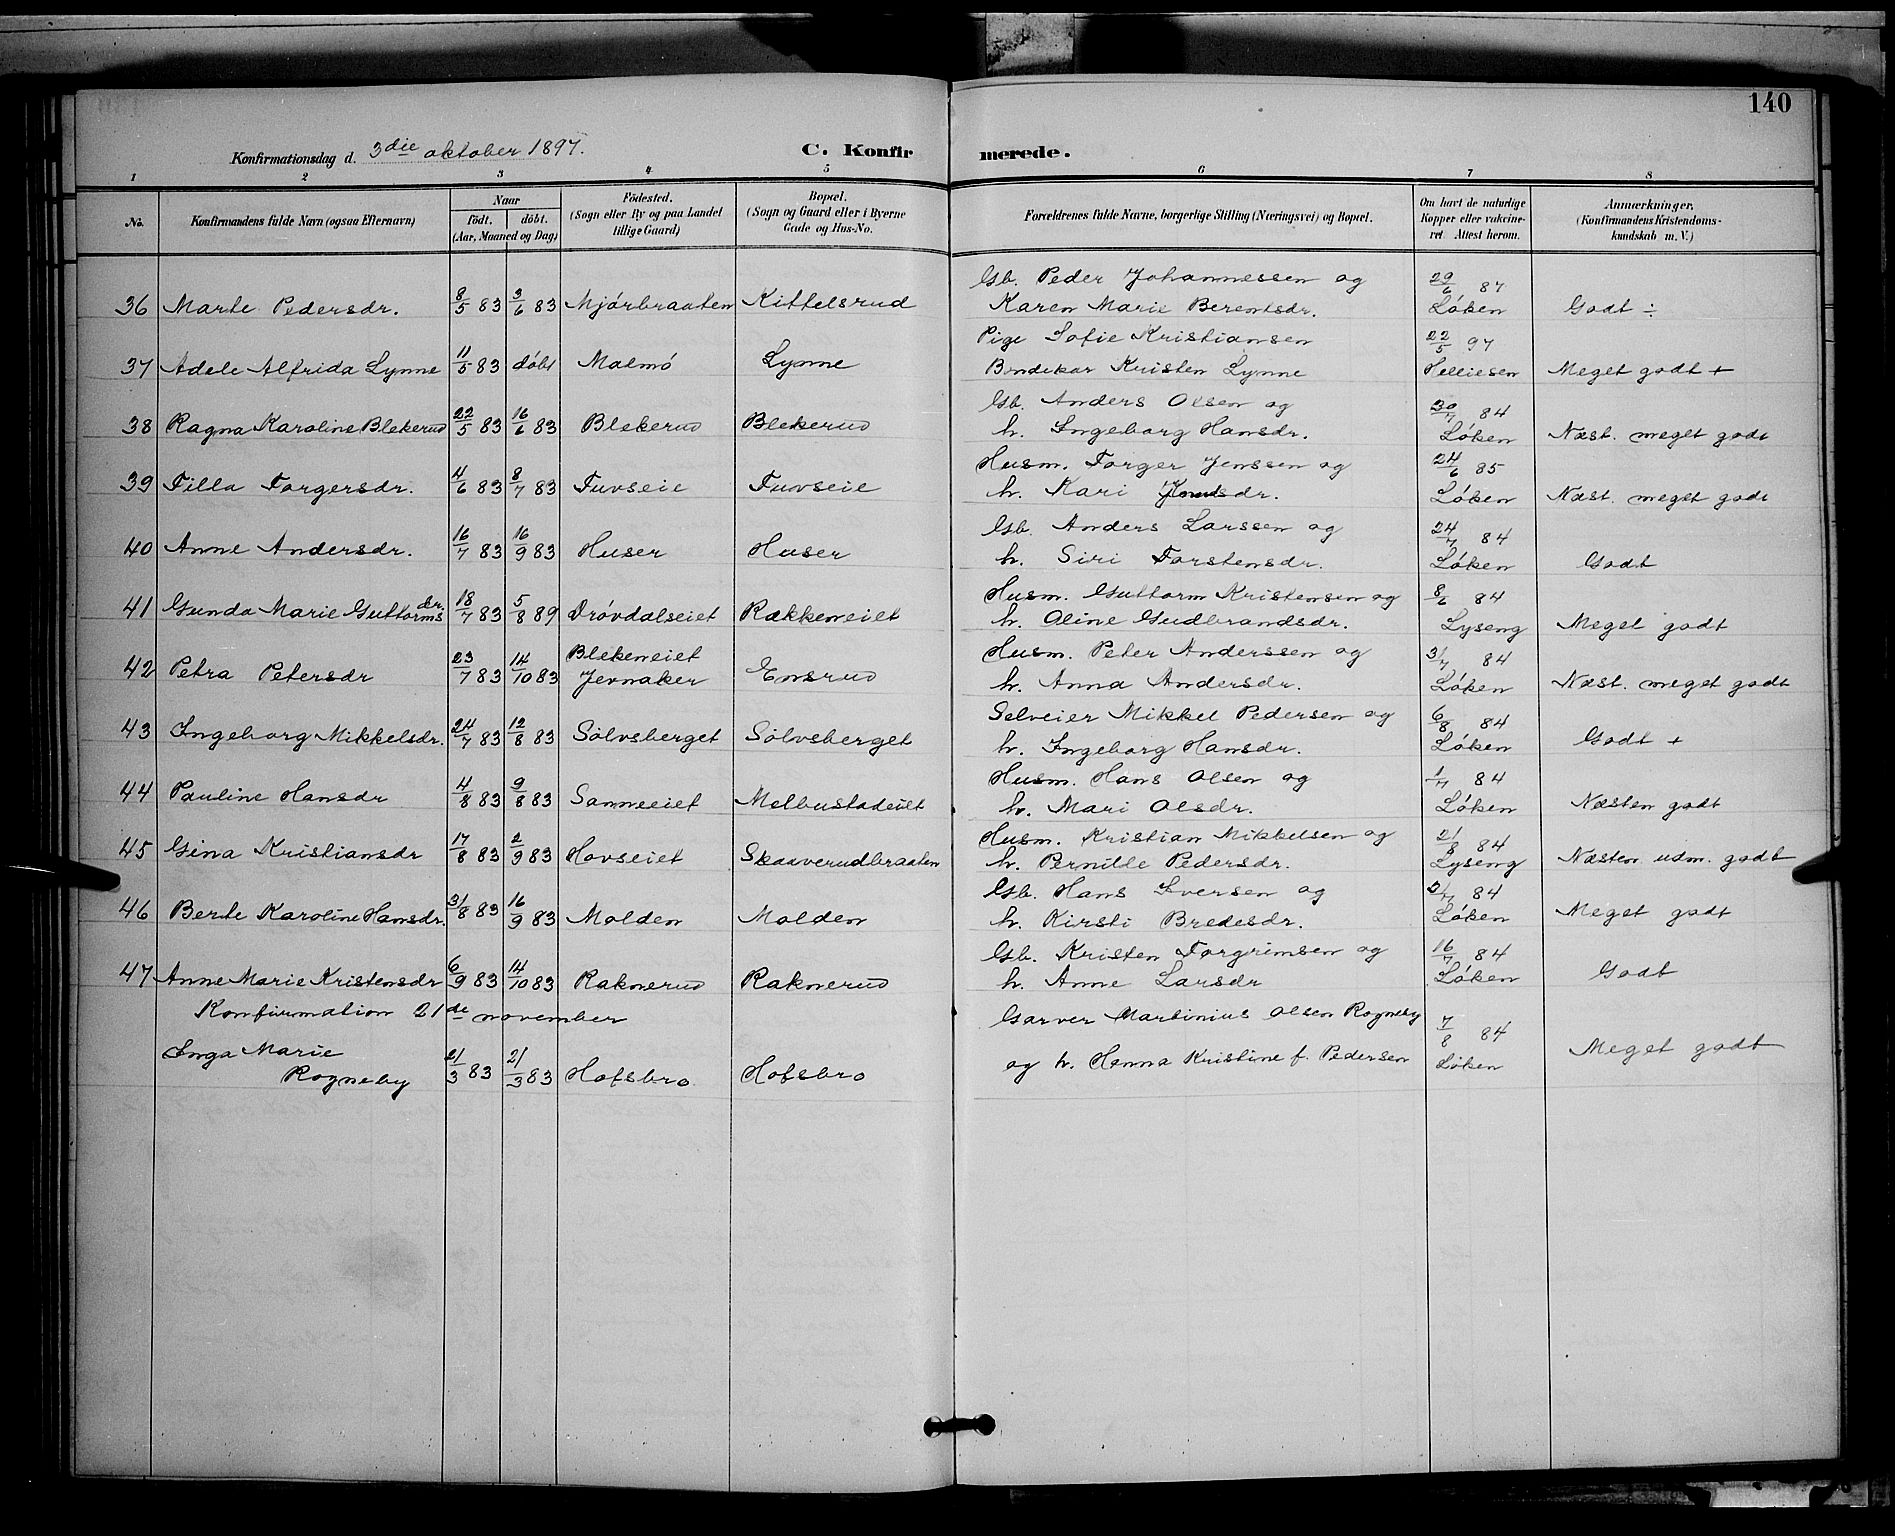 140
Konfirmationsdag d. 3die oktober 1897. C. Konfirmerede.
1 2 3 4 5 6 7 8
No. Konfirmandens fulde Navn (ogsaa Efternavn) Naar födt. döbt. (Aar, Maaned og Dag) Födested. (Sogn eller By og paa Landet tillige Gaard) Bopæl. (Sogn og Gaard eller i Byerne Gade og Hus-No. Forældrenes fulde Navne, borgerlige Stilling (Næringsvei) og Bopæl. Om havt de naturlige Kopper eller vakcineret. Attest herom. Anmærkninger, (Konfirmandens Kristendomskundskab m. V.)
Gb. Peder Johannessen og 29/6 87
36 Marte Pedersdr. 8/5 83 3/6 83 Mjörbraaten Kittelsrud Karen Marie Berentsdr. Löken Godt ÷
Pige Sofie Kristiansen 22/5 97
37 Adele Alfrida Lynne 11/5 83 döbt Malmö Lynne Bondekar Kristen Lynne Helliesen Meget godt +
Gb. Anders Olsen og 30/7 84
38 Ragna Karoline Blekerud 22/5 83 16/6 83 Blekerud Blekerud h. Ingeborg Hansdr. Löken Næst. meget godt
Husm. Torger Jenssen og 24/6 85
39 Tilla Torgersdr. 4/6 83 8/7 83 Tuvseie Tuvseie h. Kari Knudsdr. Löken Næst. meget godt
Gb. Anders Larssen og 24/7 84
40 Anne Andersdr. 16/7 83 16/9 83 Huser Huser h. Siri Torstensdr. Löken Godt
Husm. Guttorm Kristensen og 8/6 84
41 Gunda Marie Guttormsdr. 18/7 83 5/8 89 Drövdalseiet Rækkeneiet h. Oline Gudbrandsdr. Lyseng Meget godt
Blekeneiet Husm. Peter Anderssen og 31/7 84
42 Petra Petersdr 23/7 83 14/10 83 Jevnaker Ensrud h. Anna Andersdr. Löken Næst. meget godt
Selveier Mikkel Pedersen og 6/8 84
43 Ingeborg Mikkelsdr. 24/7 83 12/8 83 Sölvsberget Sölvsberget h. Ingeborg Hansdr. Löken Godt +
Husm. Hans Olsen og 1/7 84
44 Pauline Hansdr 4/8 83 9/8 83 Sanneeiet Melbustadeiet h. Mari Olsdr. Löken Næsten godt
Husm. Kristian Mikkelsen og 21/8 84
45 Gina Kristiansdr 17/8 83 2/9 83 Hovseiet Skaaverudbraaten h. Pernille Pedersdr. Lyseng Næsten udm. godt
Gb. Hans Iversen og 84
46 Berte Karoline Hansdr. 31/8 83 16/9 83 Molden Molden h. Kirsti Bredesdr. Löken Meget godt
Gb. Kristen Torgrimsen og 16/7 84
47 Anne Marie Kristensdr 6/9 83 14/10 83 Raknerud Raknerud h. Anne Larsdr Löken Godt
Konfirmation 21de november
Garver Martinius Olsen Rogneby 7/8 84
Inga Marie
Rogneby 21/3 83 21/3 83 Hofsbro Hofsbro og h. Henna Kristine f. Pedersen Löken Meget godt